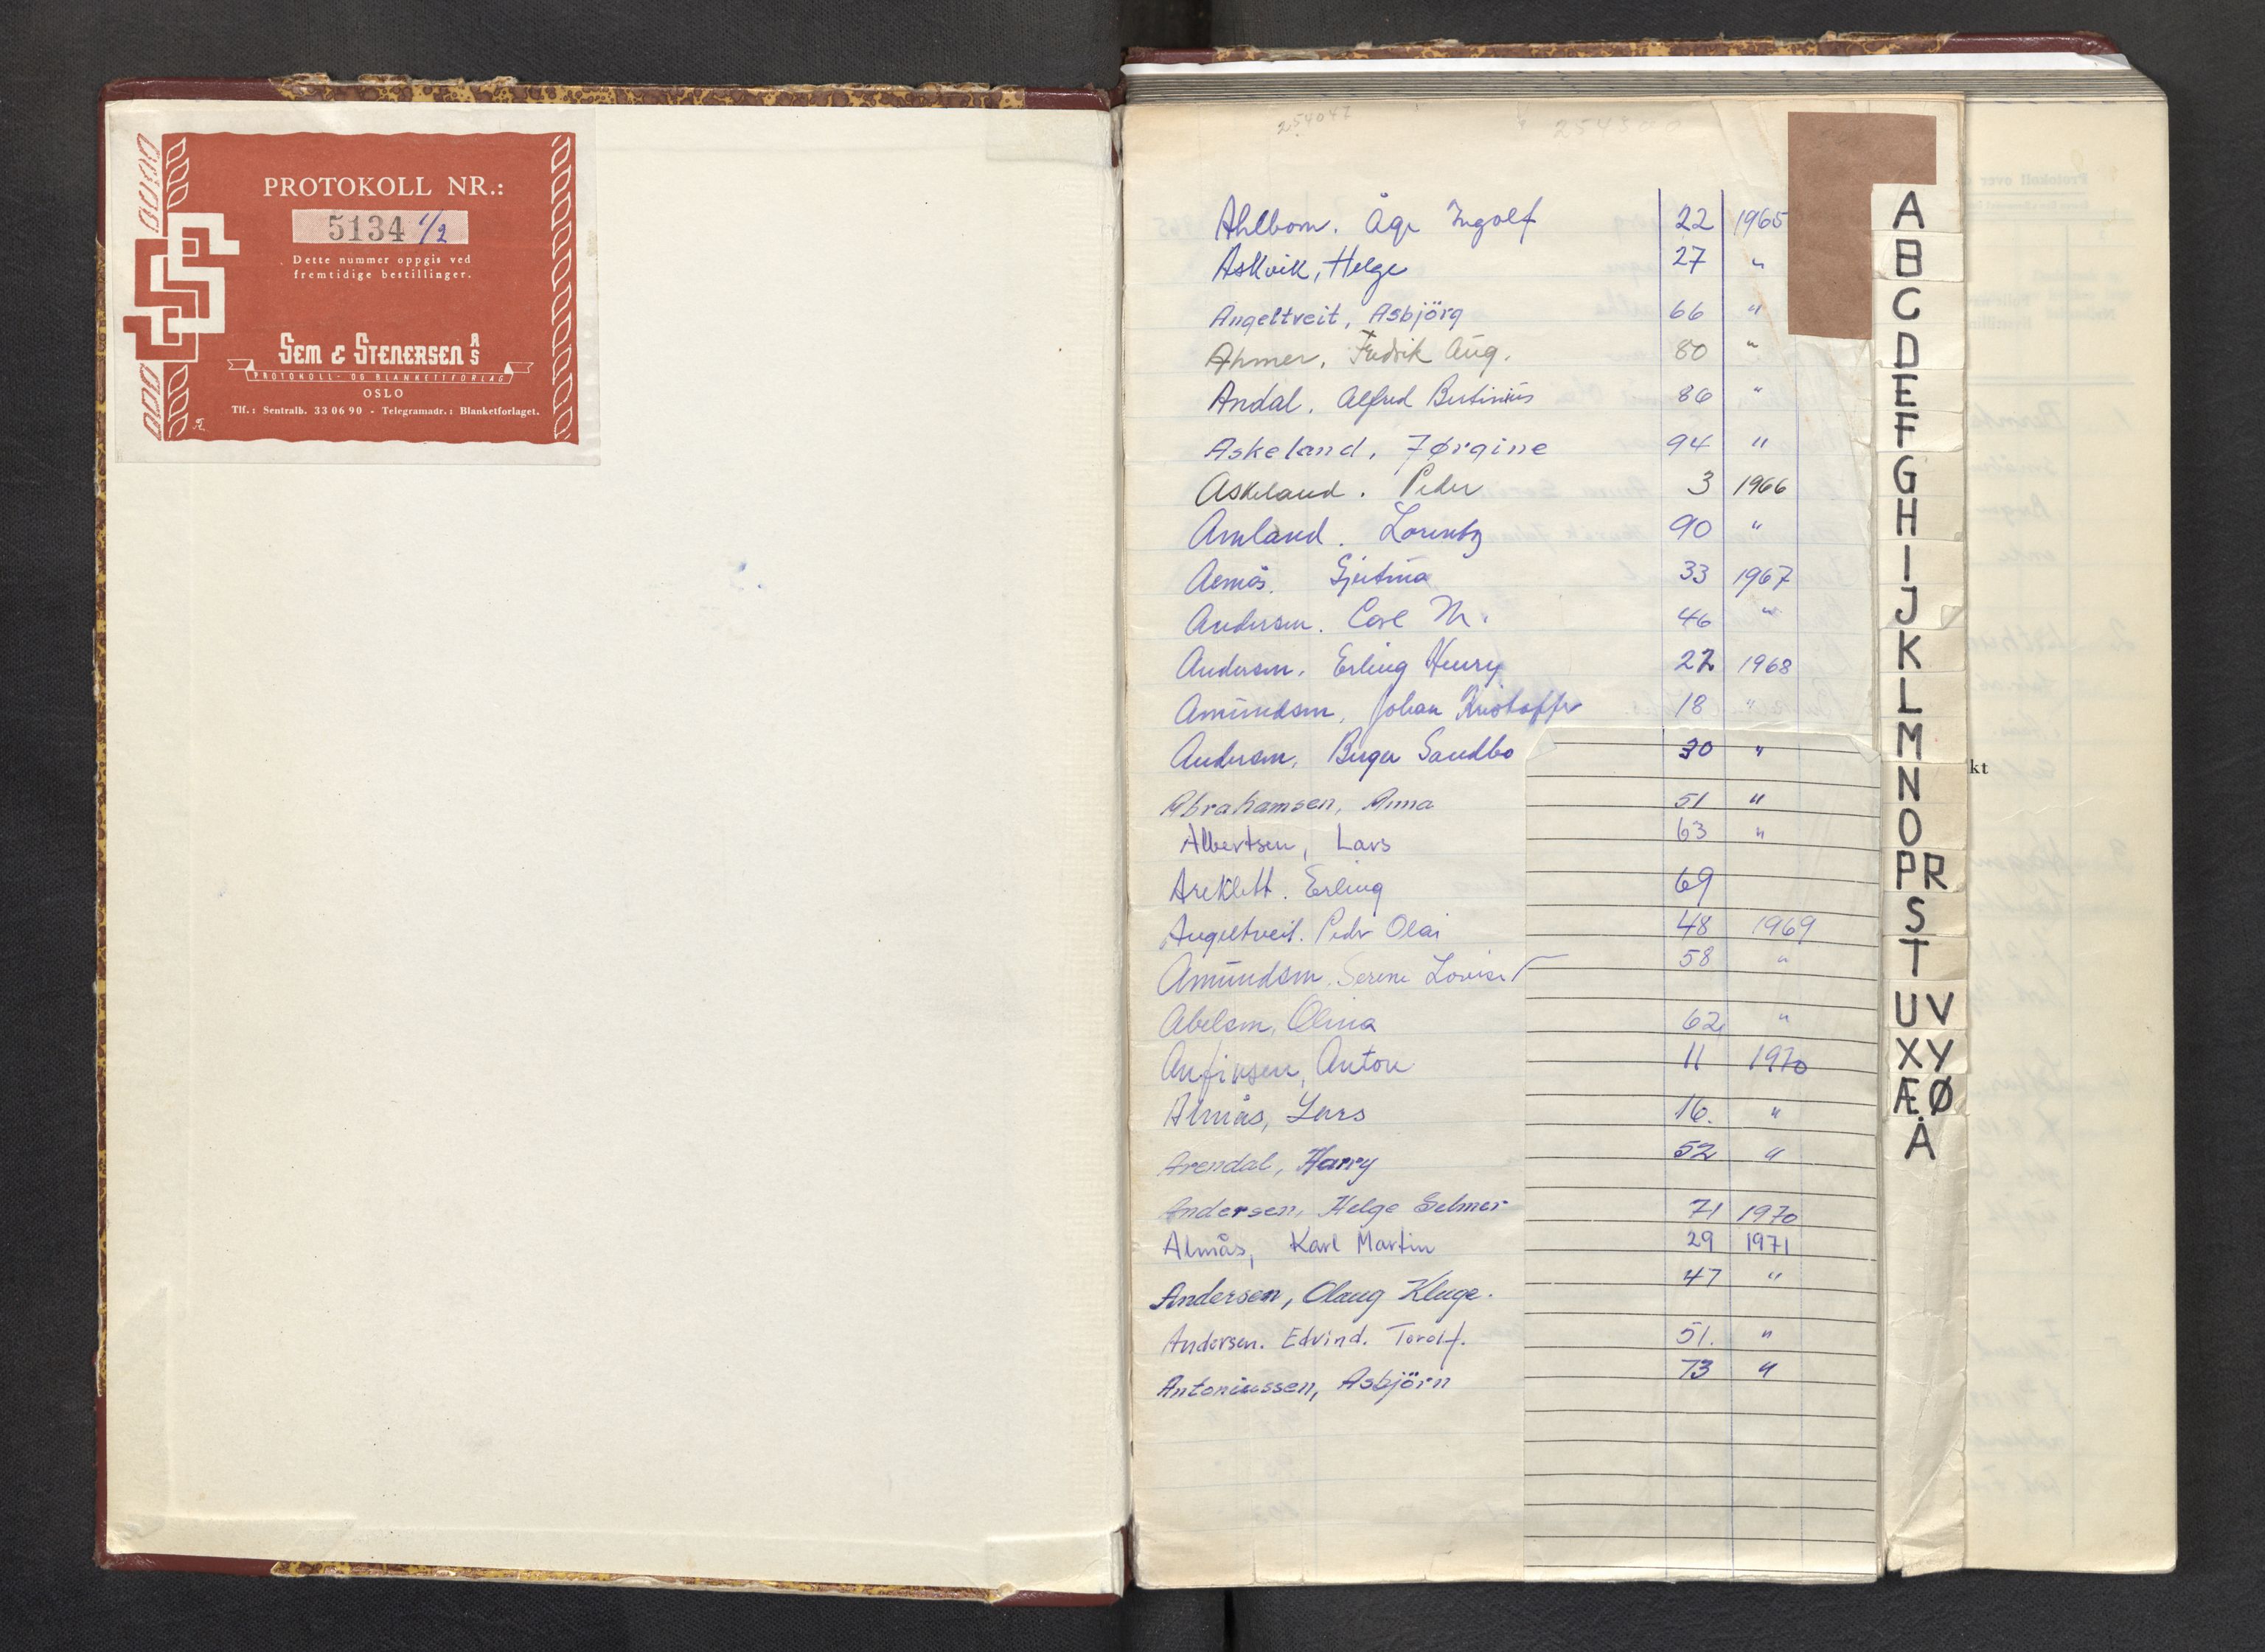 PROTOKOLL NR.:
5134 1/2
Dette nummer oppgis ved
fremtidige bestillinger.
SEM & STENERSEN A/S
PROTOKOLL- OG BLANKETTFORLAG
OSLO
Tlf.: Sentralb. 33 06 90 - Telegramadr.: Blanketforlaget.
254047
Ahlbom. Åge Ingolf 22 1965
Askvik, Helge 27 "
Angeltveit, Asbjörg 66 "
Ahmer, Fredrik Aug. 80 "
Andal. Alfred Bertinius 86 "
Askeland, Jørgine 94 "
Askeland. Peder 3 1966
Amland. Lorentz 90 "
Almås. Gjertina 33 1967
Andersen. Carl M. 46 "
Andersen, Erling Henry 22 1968
Amundsen, Johan Kristoffer 18 "
Andersen, Birger Sandbo 30 "
Abrahamsen, Anna 51 "
Albertsen, Lars 63 "
Areklett. Erling 69
Angeltveit. Peder Olai 48 1969
Amundsen. Serene Lovise 58 "
Abelsen, Olina 62 "
Anfinsen, Anton 11 1970
Almås, Lars 16. "
Arendal, Harry 52 "
Andersen, Helge Selmer 71 1970
Almås, Karl Martin 29 1971
Andersen, Olaug Kluge. 47 "
Andersen. Edvind. Torolf. 51. "
Antoniussen, Asbjörn 73 "
A
B
C
D
E
F
G
H
I
J
K
L
M
N
O
P R
S
T
U V
X Y
Æ Ø
Å
kt